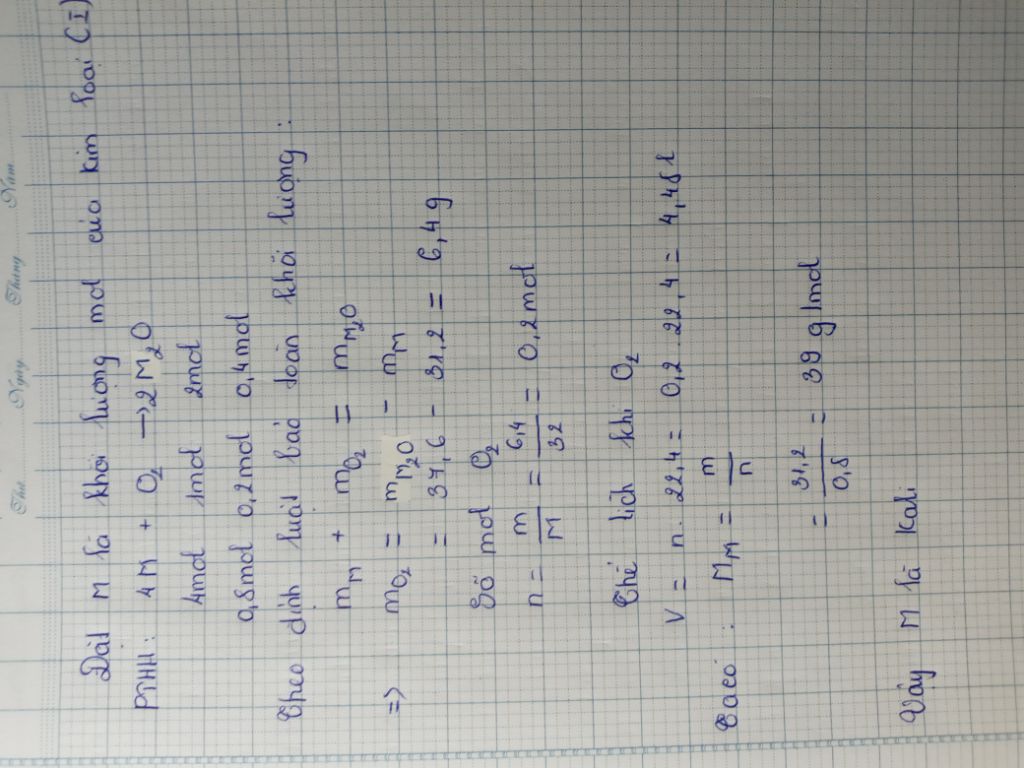 Thứ Ngày Tháng Năm
Đặt M là khối lượng mol của kim loại (I)
PTHH: 4M + O₂ → 2M₂O
4mol 1mol 2mol
0,8mol 0,2mol 0,4mol
Theo định luật bảo toàn khối lượng:
m_M + m_O₂ = m_M₂O
=> m_O₂ = m_M₂O - m_M
= 37,6 - 31,2 = 6,4g
Số mol O₂
n = m/M = 6,4/32 = 0,2mol
Thể tích khí O₂
V = n. 22,4 = 0,2. 22,4 = 4,48l
Ta có: M_M = m/n
= 31,2/0,8 = 39 g/mol
Vậy M là Kali